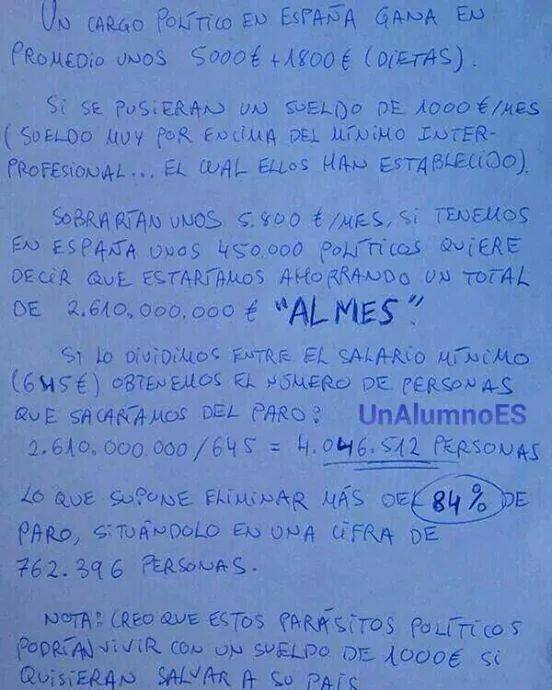 UN CARGO POLÍTICO EN ESPAÑA GANA EN
PROMEDIO UNOS 5000€ + 1800€ (DIETAS).
SI SE PUSIERAN UN SUELDO DE 1000€/MES
(SUELDO MUY POR ENCIMA DEL MÍNIMO INTER-
PROFESIONAL... EL CUAL ELLOS HAN ESTABLECIDO).
SOBRARÍAN UNOS 5.800 €/MES, SI TENEMOS
EN ESPAÑA UNOS 450.000 POLÍTICOS QUIERE
DECIR QUE ESTARÍAMOS AHORRANDO UN TOTAL
DE 2.610.000.000 € "AL MES".
SI LO DIVIDIMOS ENTRE EL SALARIO MÍNIMO
(645€) OBTENEMOS EL NÚMERO DE PERSONAS
QUE SACARÍAMOS DEL PARO: UnAlumnoES
2.610.000.000/645 = 4.046.512 PERSONAS
LO QUE SUPONE ELIMINAR MÁS DEL 84% DE
PARO, SITUÁNDOLO EN UNA CIFRA DE
762.396 PERSONAS.
NOTA: CREO QUE ESTOS PARÁSITOS POLÍTICOS
PODRÍAN VIVIR CON UN SUELDO DE 1000€ SI
QUISIERAN SALVAR A SU PAÍS